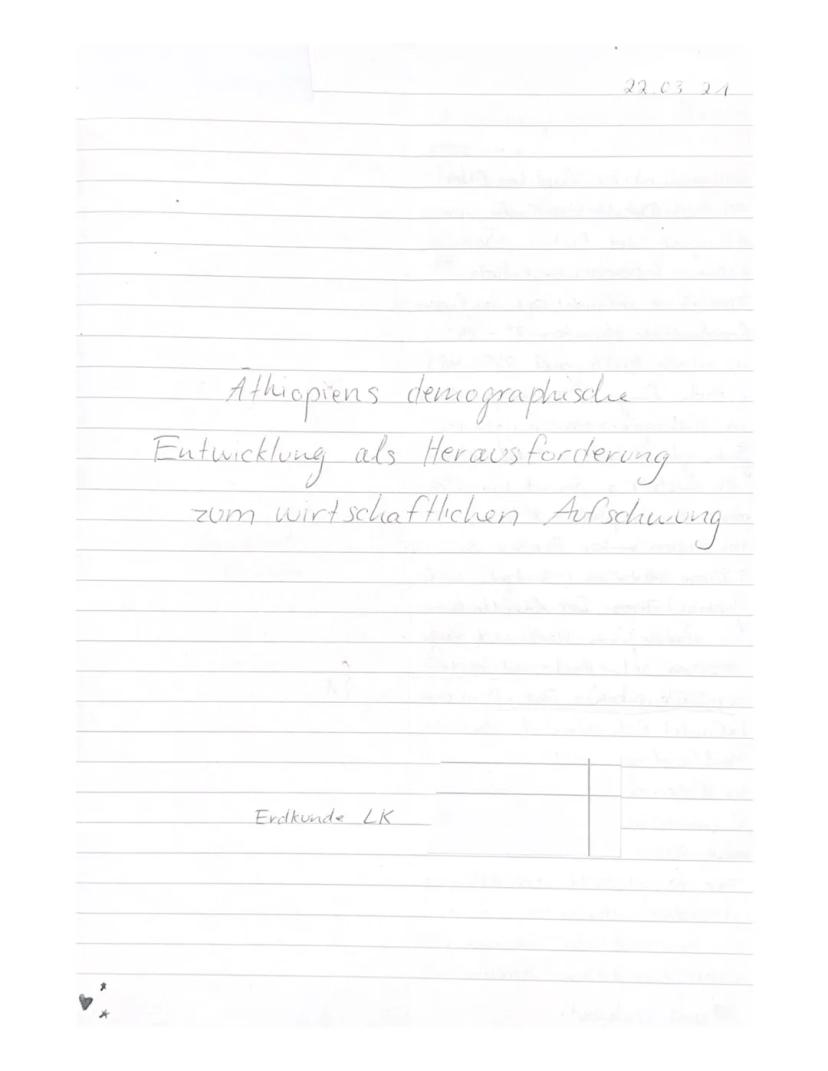 22.03 21
Äthiopiens demographische
Entwicklung als Herausforderung
zum wirtschaftlichen Aufschwung
Erdkunde LK